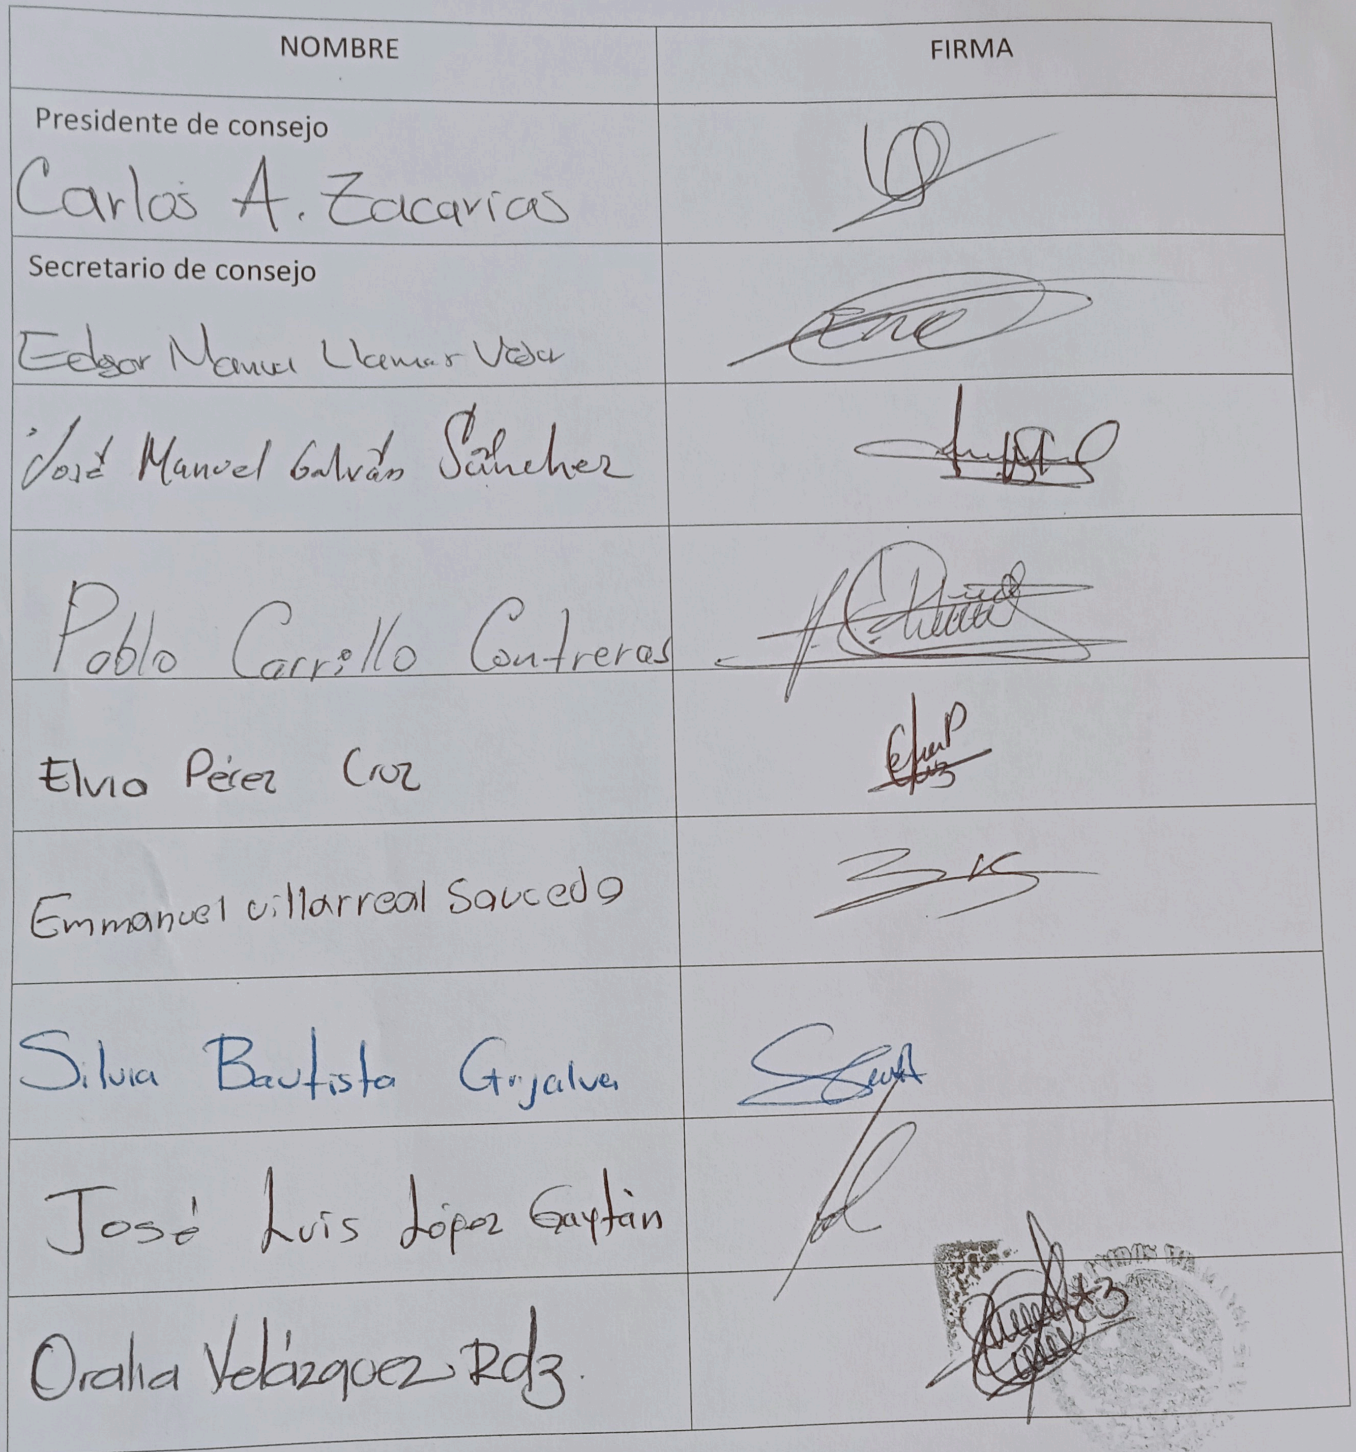 NOMBRE FIRMA
Presidente de consejo
Carlos A. Zacarias
Secretario de consejo
Edgar Manuel Llamas
José Manuel Galván Sánchez
Pablo Carrillo Contreras
Elvia Pérez Cruz
Emmanuel Villarreal Saucedo
Silvia Bautista Grijalva
José Luis López Gaytán
Oralia Velázquez Rdz.